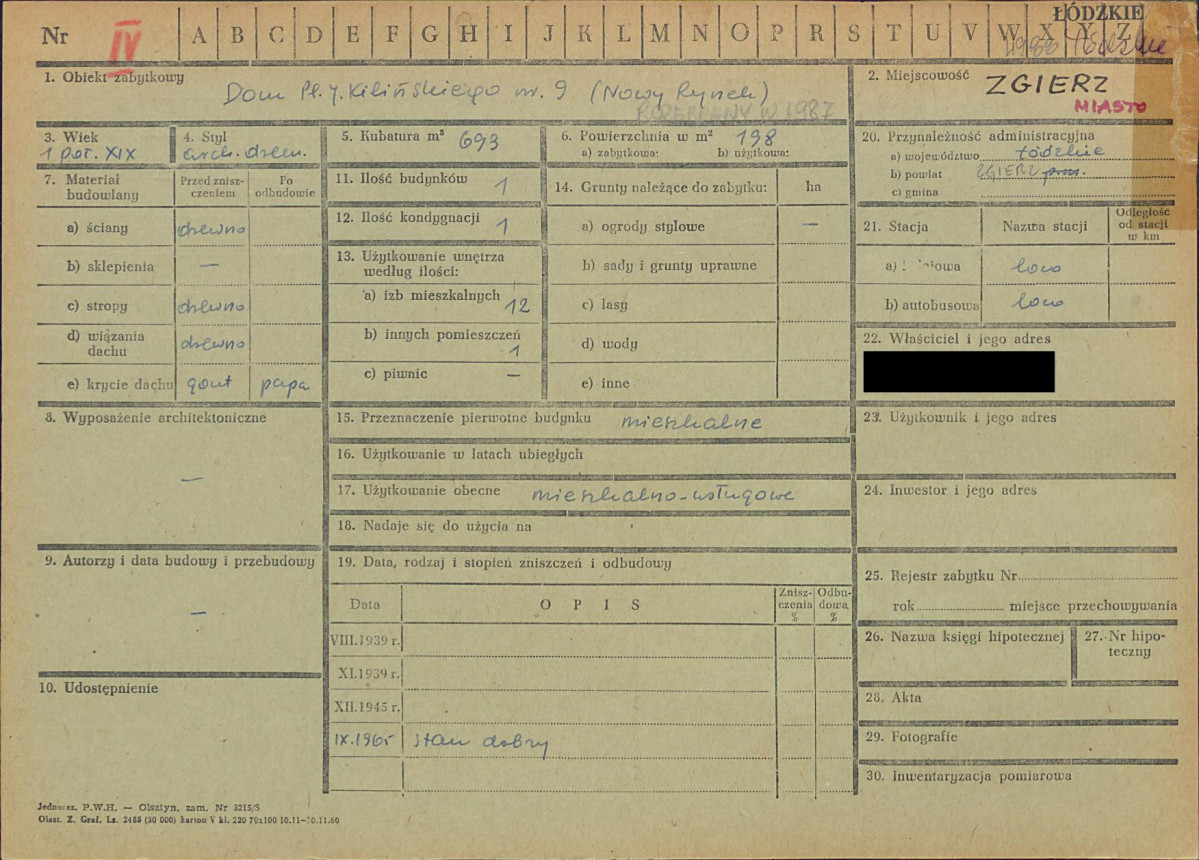 ŁÓDZKIE
Nr IV A B C D E F G H I J K L M N O P R S T U V W X Y Z
1988 łódzkie
1. Obiekt zabytkowy
Dom Pl. J. Kilińskiego nr. 9 (Nowy Rynek)
ROZEBRANY W 1987
2. Miejscowość ZGIERZ
MIASTO
3. Wiek
1 poł. XIX
4. Styl
arch. drewn.
5. Kubatura m³ 693
6. Powierzchnia w m² 198
a) zabytkowa: b) użytkowa:
7. Materiał budowlany
Przed zniszczeniem
Po odbudowie
a) ściany drewno
b) sklepienia —
c) stropy drewno
d) wiązania dachu drewno
e) krycie dachu gont papa
8. Wyposażenie architektoniczne
—
9. Autorzy i data budowy i przebudowy
—
10. Udostępnienie
11. Ilość budynków 1
12. Ilość kondygnacji 1
13. Użytkowanie wnętrza
według ilości:
a) izb mieszkalnych 12
b) innych pomieszczeń
1
c) piwnic —
14. Grunty należące do zabytku: ha
a) ogrody stylowe —
b) sady i grunty uprawne
c) lasy
d) wody
e) inne
15. Przeznaczenie pierwotne budynku mieszkalne
16. Użytkowanie w latach ubiegłych
17. Użytkowanie obecne mieszkalno-usługowe
18. Nadaje się do użycia na
19. Data, rodzaj i stopień zniszczeń i odbudowy
Data OPIS Zniszczenia % Odbudowa %
VIII.1939 r.
XI.1939 r.
XII.1945 r.
IX.1965 stan dobry
20. Przynależność administracyjna
a) województwo łódzkie
b) powiat ZGIERZ
c) gmina
21. Stacja Nazwa stacji Odległość od stacji w km
a) loco
b) autobusowa loco
22. Właściciel i jego adres
23. Użytkownik i jego adres
24. Inwestor i jego adres
25. Rejestr zabytku Nr
rok miejsce przechowywania
26. Nazwa księgi hipotecznej
27. Nr hipoteczny
28. Akta
29. Fotografie
30. Inwentaryzacja pomiarowa
Jednosz. P.W.H. — Olsztyn, zam. Nr 3215/S
Olszt. Z. Graf. Lz. 2485 (30 000) karton V kl. 220 70x100 10.11-30.11.60